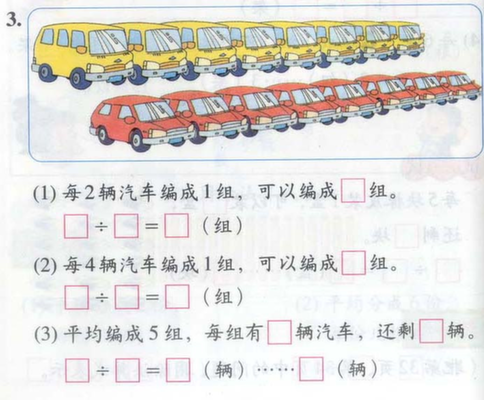 3.
(1) 每2辆汽车编成1组，可以编成□组。
□÷□=□（组）
(2) 每4辆汽车编成1组，可以编成□组。
□÷□=□（组）
(3) 平均编成5组，每组有□辆汽车，还剩□辆。
□÷□=□（辆）……□（辆）